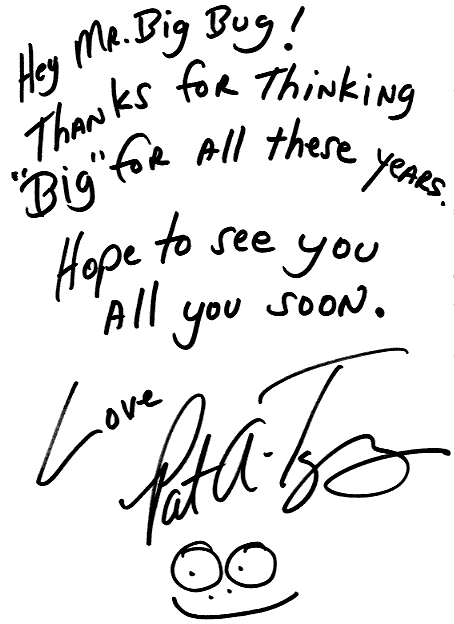 Hey MR. Big Bug!
THANKS foR Thinking
"Big" foR All these yeARS.
Hope to see you
All you SOON.
Love
Pat A-